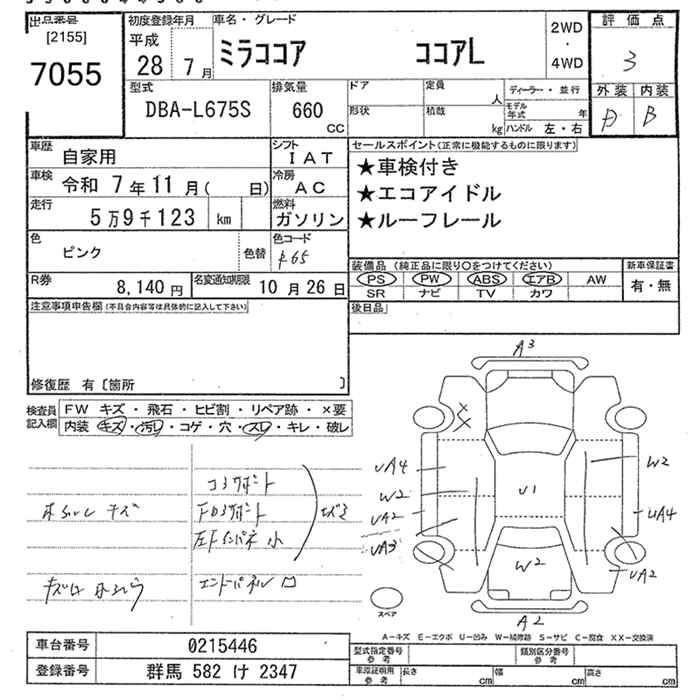 出品番号
[2155]
7055
初度登録年月
平成
28 7月
車名・グレード
ミラココア ココアL
2WD
・
4WD
評価点
3
外装 内装
D B
型式
DBA-L675S
排気量
660
CC
ドア
形状
定員
人
積載
kg
ディーラー・並行
モデル年式 年
ハンドル 左・右
車歴
自家用
シフト
IAT
車検
令和 7年11月( 日)
冷房
AC
走行
5万9千123 km
燃料
ガソリン
色
ピンク
色替
色コード
R65
R券
8,140円
名変通知期限
10月26日
セールスポイント(正常に機能するものに限ります)
★車検付き
★エコアイドル
★ルーフレール
装備品(純正品に限り○をつけてください)
PS PW ABS エアB AW
SR ナビ TV カワ
新車保証書
有・無
後日品
注意事項申告欄(不具合内容等は具体的に記入して下さい)
修復歴 有〔箇所 〕
検査員
記入欄
FW キズ・飛石・ヒビ割・リペア跡・×要
内装 キズ・汚レ・コゲ・穴・スレ・キレ・破レ
コアサポート
左Fインパネ 小
エンドパネル
A3
UA4
W2
UA2
UA3
U1
W2
W2
UA4
UA2
A2
スペア
A-キズ E-エクボ U-凹み W-補修跡 S-サビ C-腐食 XX-交換済
車台番号
0215446
登録番号
群馬 582 け 2347
型式指定番号
参考
類別区分番号
参考
車庫証明用
参考
長さ cm
幅 cm
高さ cm